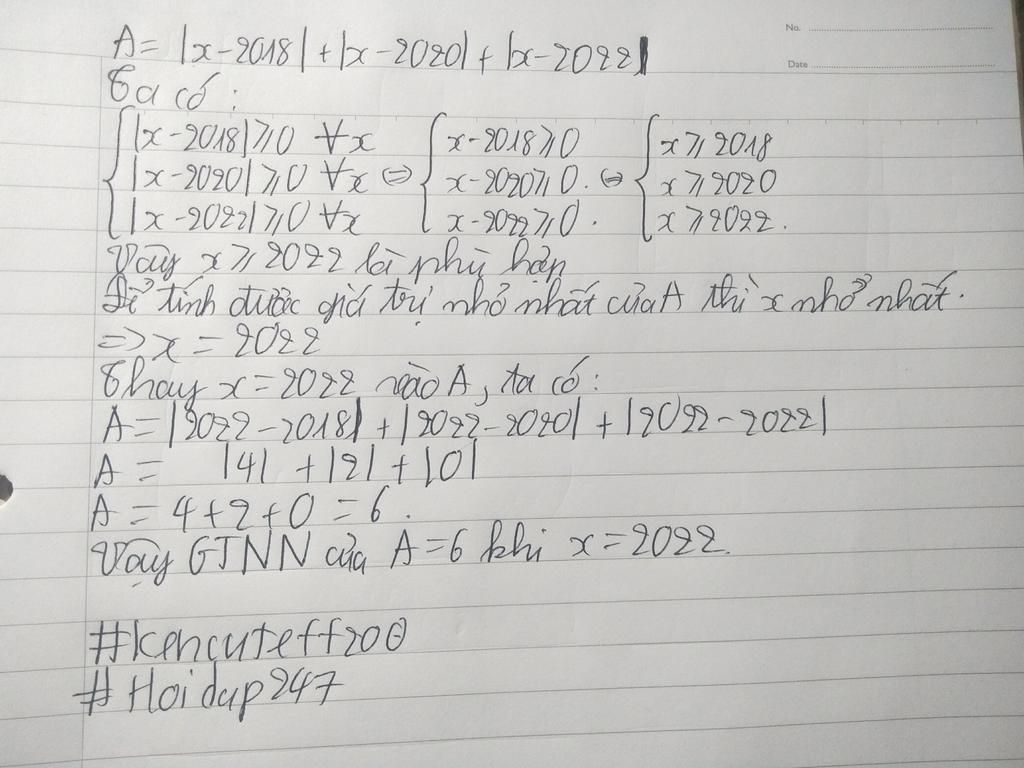 No.
Date
A = |x-2018| + |x-2020| + |x-2022|
Ta có:
{ |x-2018| ⩾ 0 ∀x { x-2018 ⩾ 0 { x ⩾ 2018
|x-2020| ⩾ 0 ∀x ⇔ x-2020 ⩾ 0. ⇔ x ⩾ 2020
|x-2022| ⩾ 0 ∀x x-2022 ⩾ 0. x ⩾ 2022.
Vậy x ⩾ 2022 là phù hợp
Để tính được giá trị nhỏ nhất của A thì x nhỏ nhất.
=> x = 2022
Thay x = 2022 vào A, ta có:
A = |2022-2018| + |2022-2020| + |2022-2022|
A = |4| + |2| + |0|
A = 4+2+0 = 6.
Vậy GTNN của A = 6 khi x = 2022.
#Kencuteff200
#Hoidap247